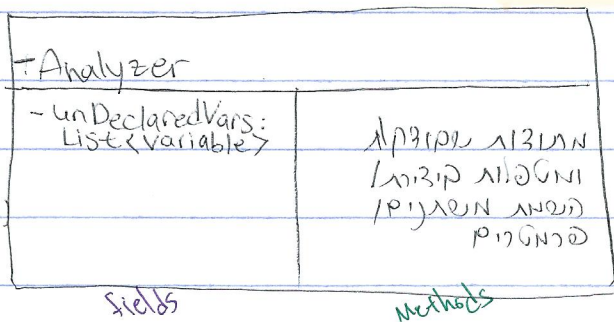 - Analyzer
- unDeclaredVars:
List<Variable>
מתודות שבודקות
ומטפלות ביצירת/
השמת משתנים/
פרמטרים
fields
Methods